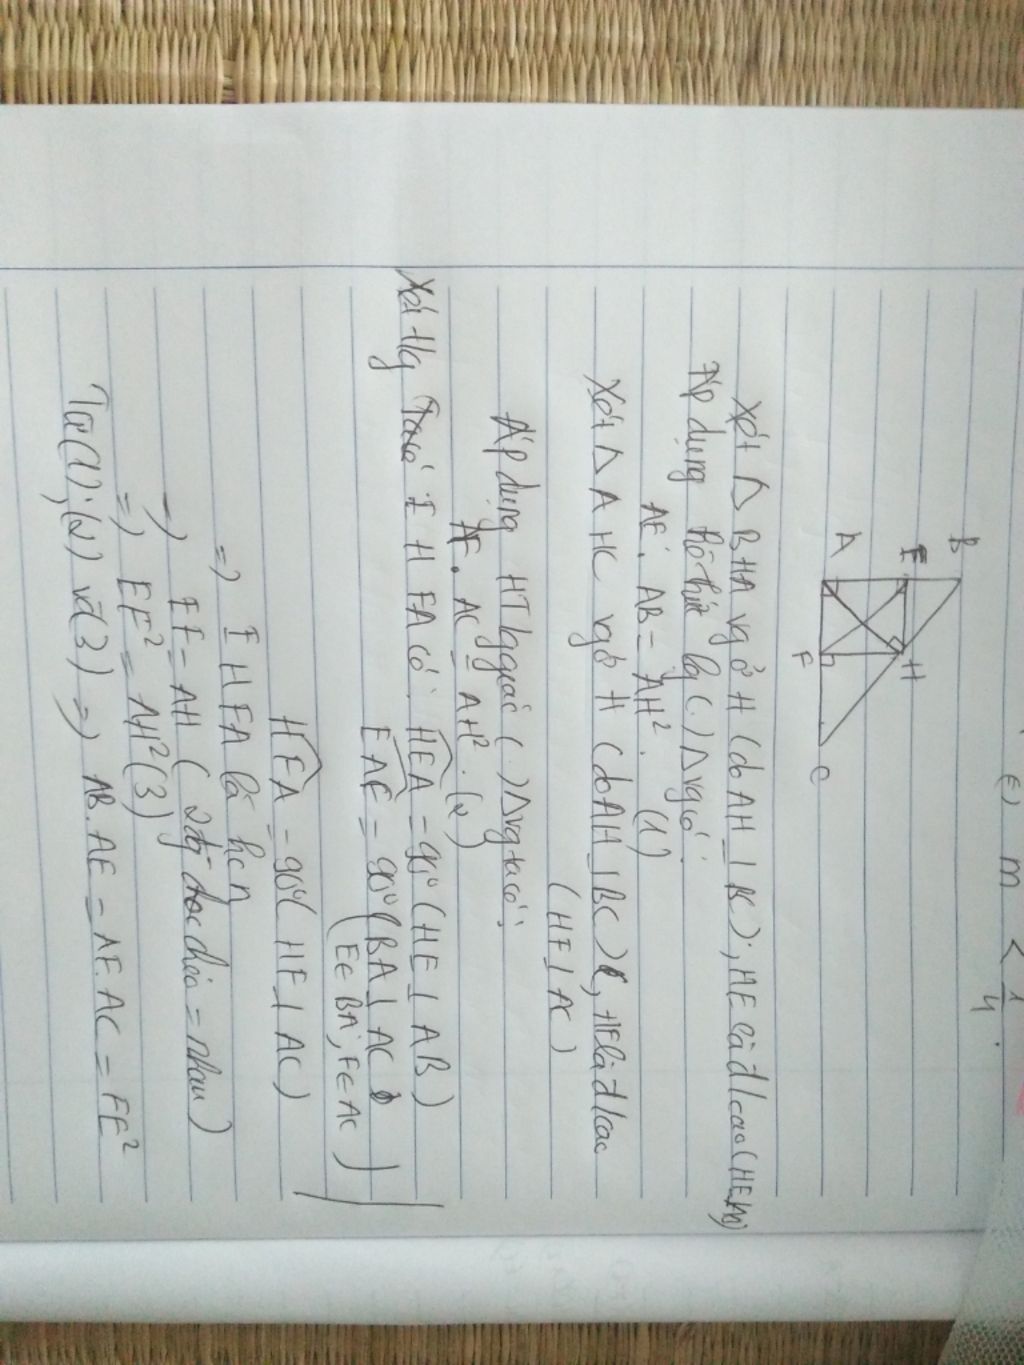 €) m < 1/4.
B
E
H
A
F
C
Xét Δ BHA vg ở H (do AH ⊥ BC); HE là đ/cao (HE⊥AB)
Áp dụng hệ thức lg (.) Δ vg có:
AE. AB = AH². (1)
Xét Δ AHC vg ở H (do AH ⊥ BC), HF là đ/cao
(HF ⊥ AC)
Áp dụng HT lg giác (.) Δ vg ta có:
AF. AC = AH². (2)
Xét tứ g Ta có E H FA có: HEA = 90° (HE ⊥ AB)
EAF = 90° (BA ⊥ AC
(E∈ BA; F∈ AC)
HFA = 90° (HF ⊥ AC)
=) E HFA là hcn
=) EF = AH (2 đg chéo = nhau)
=) EF² = AH² (3)
Từ (1); (2) và (3) =) AB. AE = AF. AC = FE²